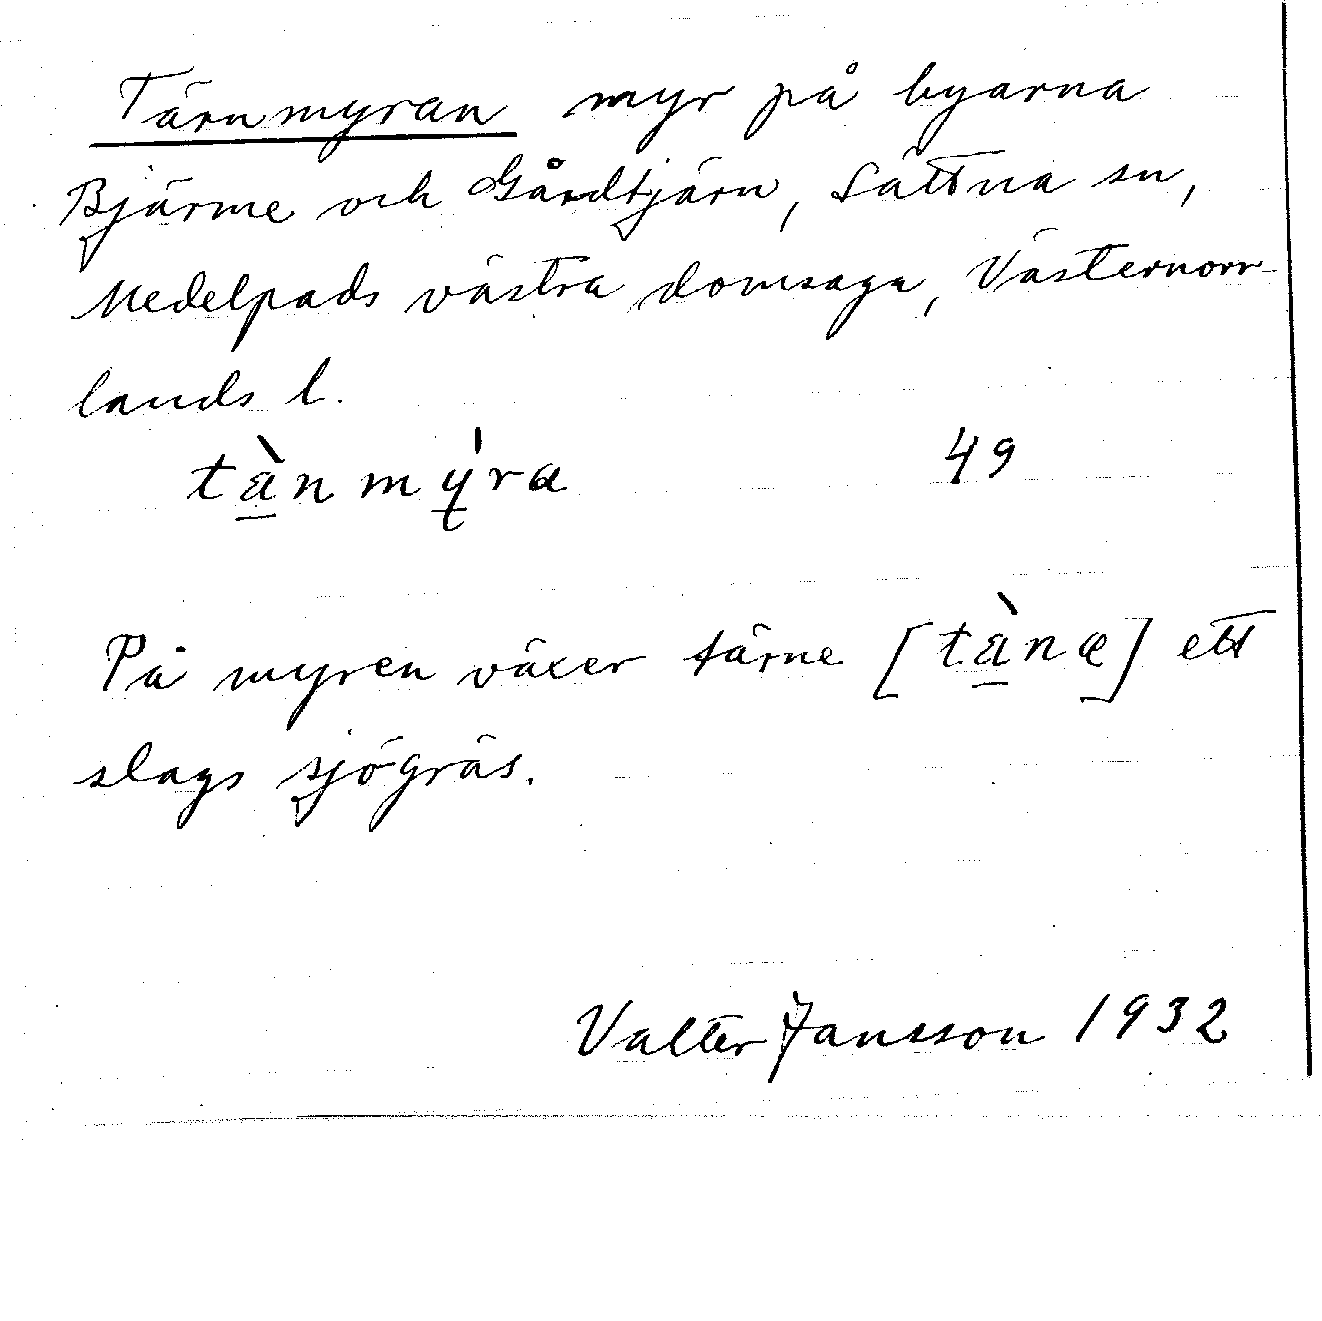 Tärnmyran myr på byarna
Bjärme och Gårdtjärn, Sättna sn,
Medelpads västra domsaga, Västernorr-
lands l.
tànmy̍ra 49
På myren växer tärne [tànæ] ett
slags sjögräs.
Valter Jansson 1932